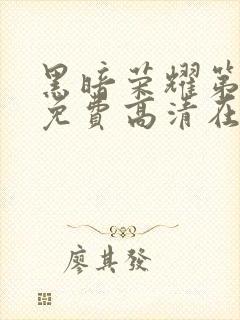 黑暗荣耀第
免費高清在
廖其發